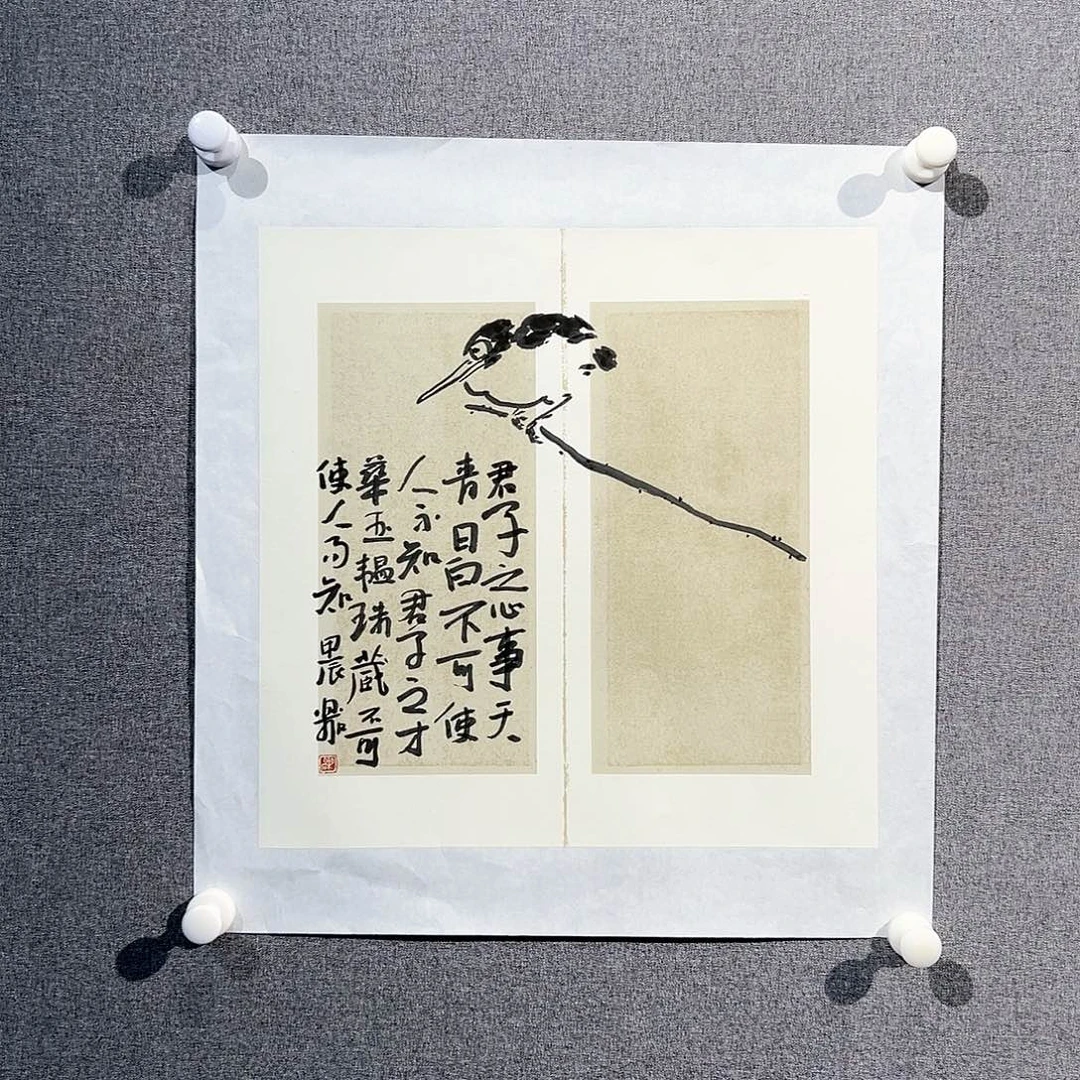 君子之心事天
青日白不可使
人不知君子之才
華玉韞珠藏不可
使人易知 甲辰